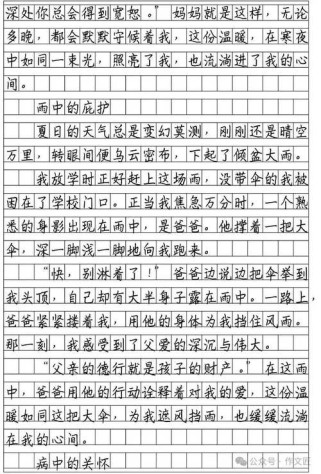 深处你总会得到宽恕。”妈妈就是这样，无论
多晚，都会默默守候着我，这份温暖，在寒夜
中如同一束光，照亮了我，也流淌进了我的心
间。
雨中的庇护
夏日的天气总是变幻莫测，刚刚还是晴空
万里，转眼间便乌云密布，下起了倾盆大雨。
我放学时正好赶上这场雨，没带伞的我被
困在了学校门口。正当我焦急万分时，一个熟
悉的身影出现在雨中，是爸爸。他撑着一把大
伞，深一脚浅一脚地向我跑来。
“快，别淋着了！”爸爸边说边把伞举到
我头顶，自己却有大半身子露在雨中。一路上，
爸爸紧紧搂着我，用他的身体为我挡住风雨。
那一刻，我感受到了父爱的深沉与伟大。
“父亲的德行就是孩子的财产。”在这雨
中，爸爸用他的行动诠释着对我的爱，这份温
暖如同这把大伞，为我遮风挡雨，也缓缓流淌
在我的心间。
病中的关怀
公众号·作文匠